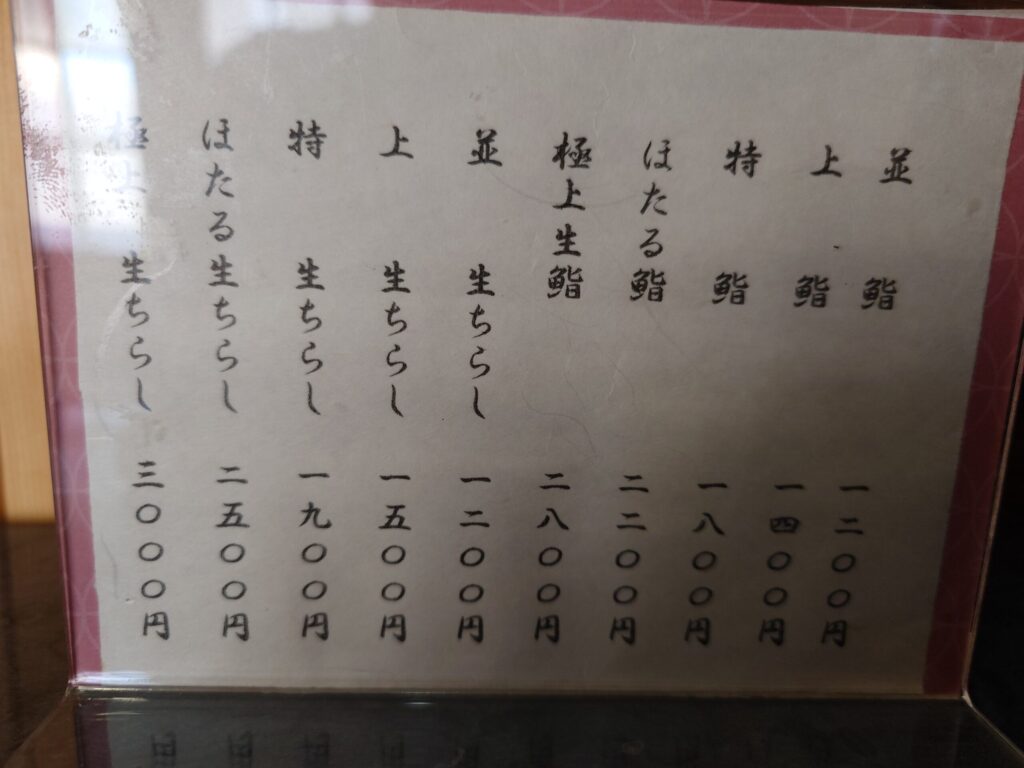 並 鮨 一二〇〇円
上 鮨 一四〇〇円
特 鮨 一八〇〇円
ほたる鮨 二二〇〇円
極上生鮨 二八〇〇円
並 生ちらし 一二〇〇円
上 生ちらし 一五〇〇円
特 生ちらし 一九〇〇円
ほたる生ちらし 二五〇〇円
極上 生ちらし 三〇〇〇円